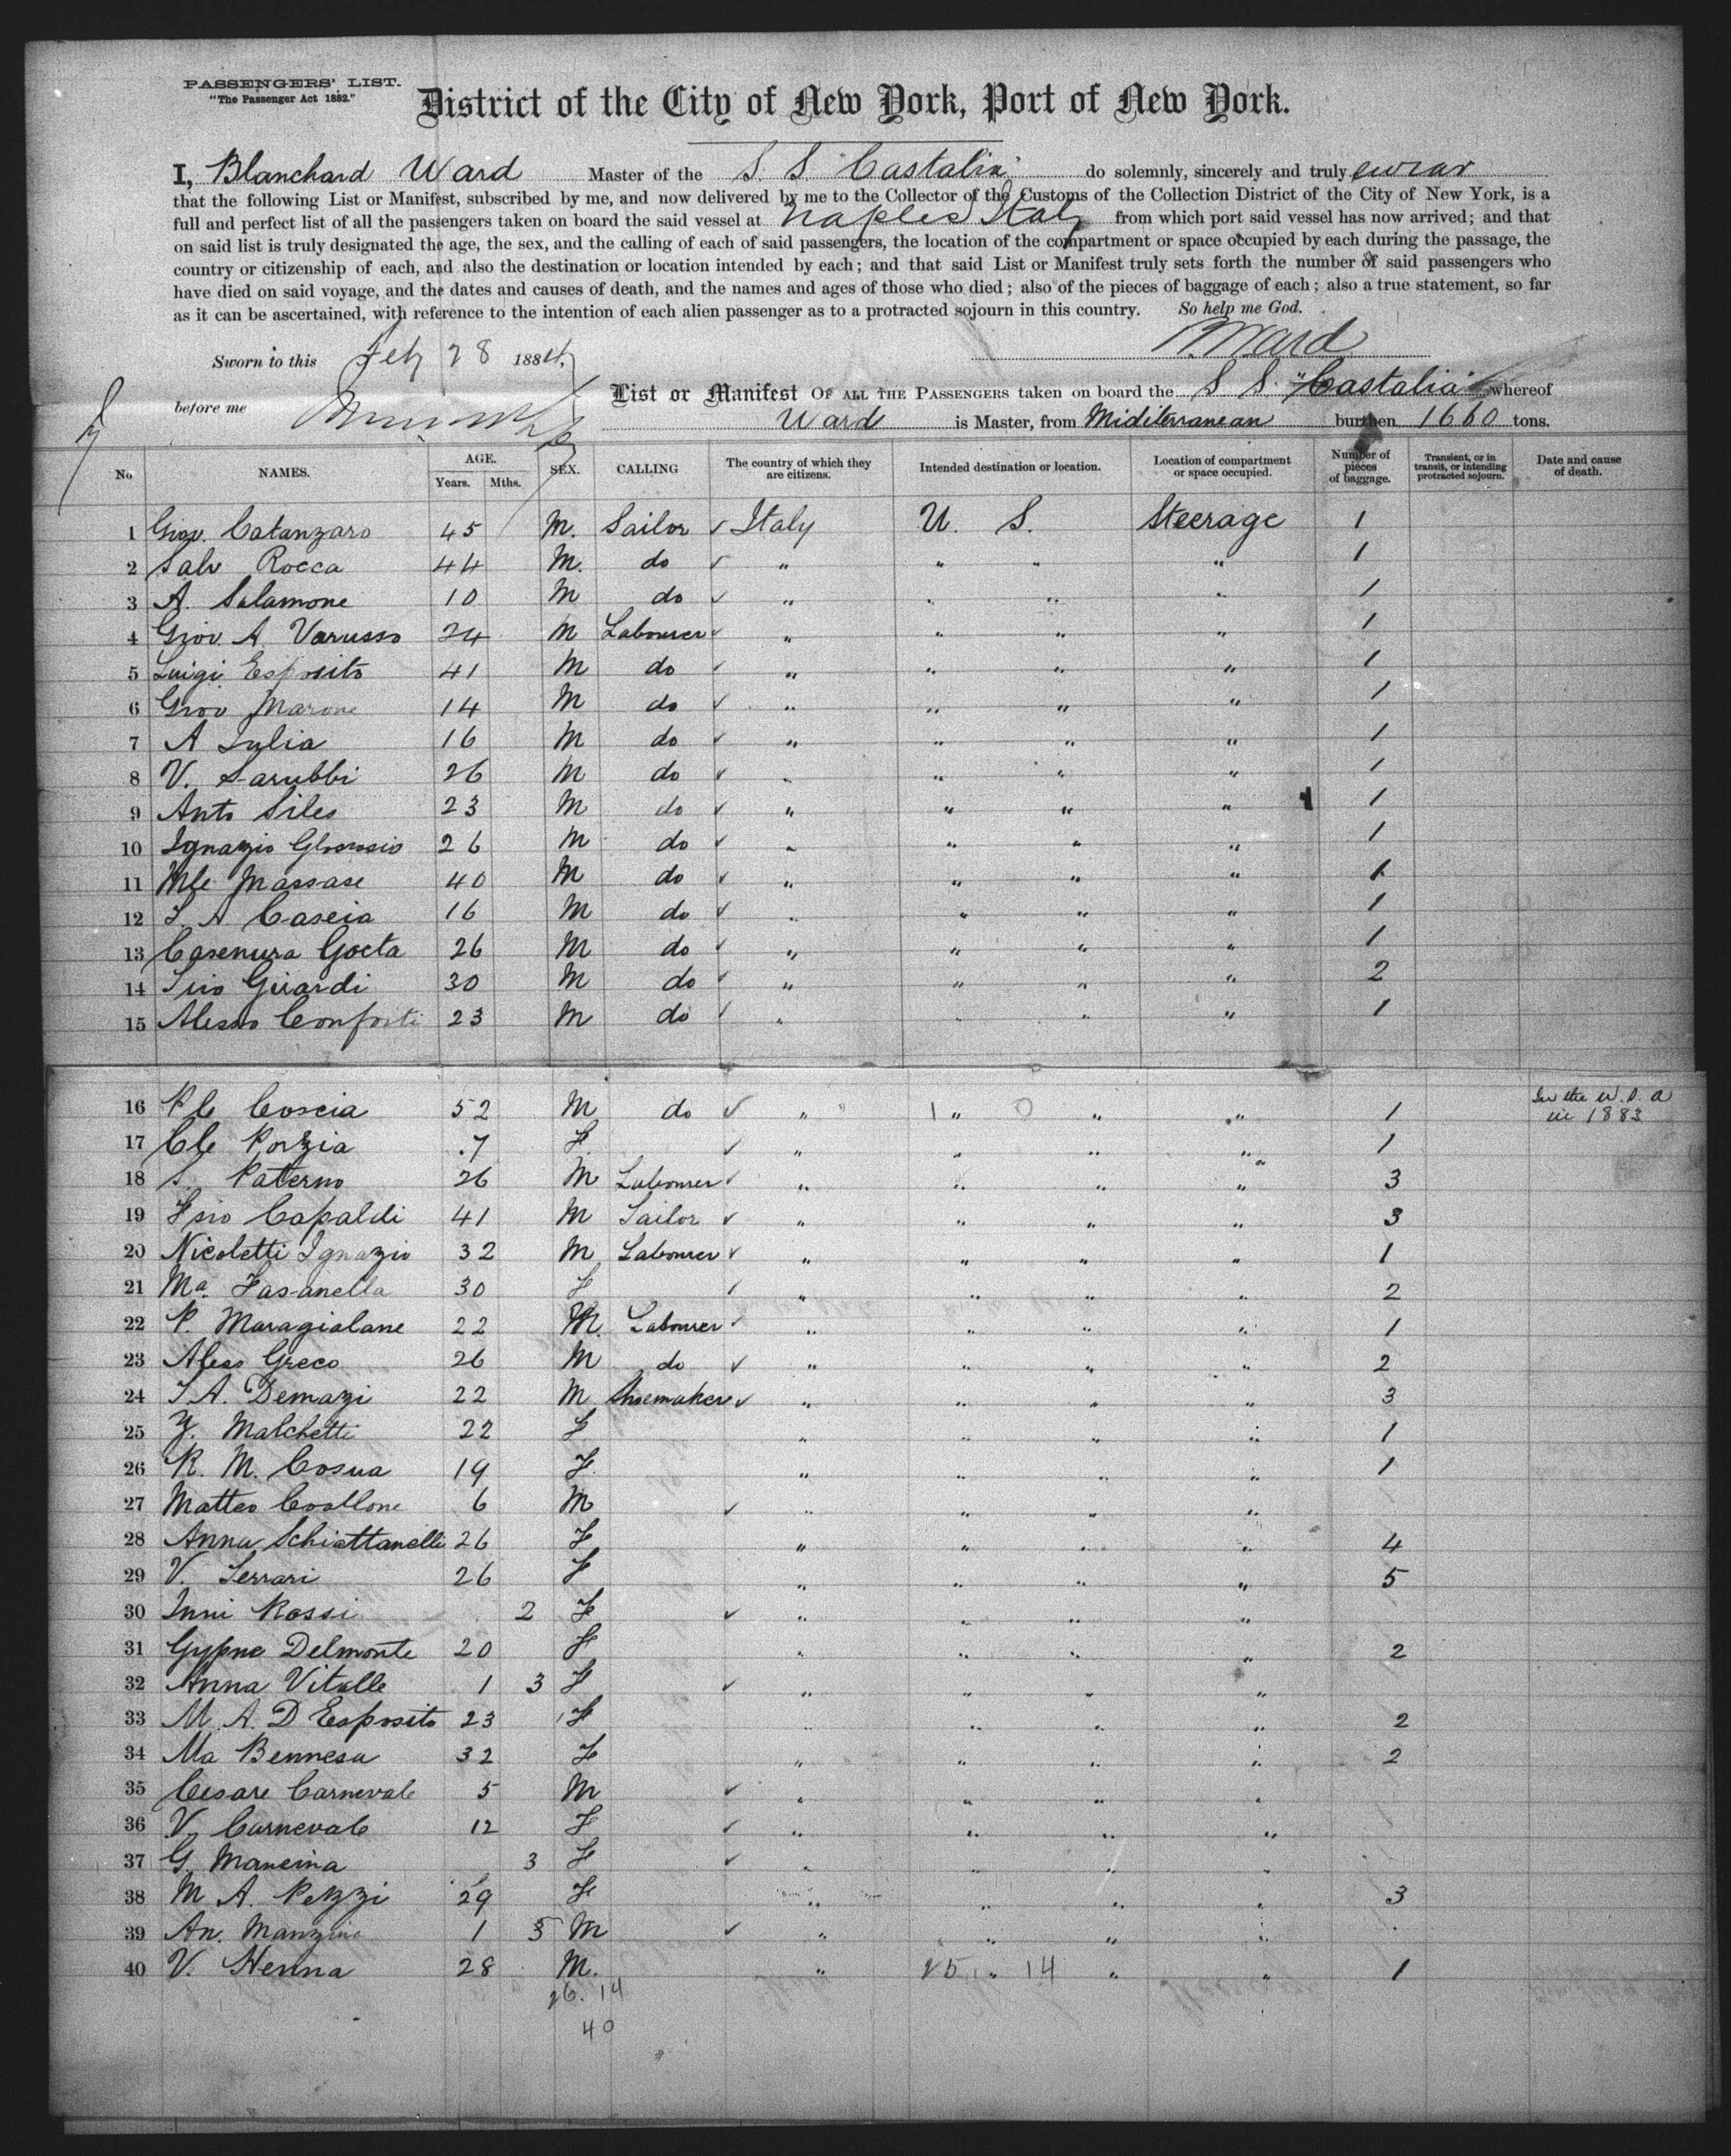 PASSENGERS' LIST.
"The Passenger Act 1882."
District of the City of New York, Port of New York.
I, Blanchard Ward Master of the S. S. "Castalia" do solemnly, sincerely and truly swear
that the following List or Manifest, subscribed by me, and now delivered by me to the Collector of the Customs of the Collection District of the City of New York, is a
full and perfect list of all the passengers taken on board the said vessel at Naples Italy from which port said vessel has now arrived; and that
on said list is truly designated the age, the sex, and the calling of each of said passengers, the location of the compartment or space occupied by each during the passage, the
country or citizenship of each, and also the destination or location intended by each; and that said List or Manifest truly sets forth the number of said passengers who
have died on said voyage, and the dates and causes of death, and the names and ages of those who died; also of the pieces of baggage of each; also a true statement, so far
as it can be ascertained, with reference to the intention of each alien passenger as to a protracted sojourn in this country. So help me God.
Ward
Sworn to this Feby 28 1884,
before me
List or Manifest OF ALL THE PASSENGERS taken on board the S S. "Castalia" whereof
Ward is Master, from Miditerranean burthen 1660 tons.
No NAMES. AGE. Years. Mths. SEX. CALLING The country of which they are citizens. Intended destination or location. Location of compartment or space occupied. Number of pieces of baggage. Transient, or in transit, or intending protracted sojourn. Date and cause of death.
1 Giov. Catanzaro 45 M. Sailor ✓ Italy U. S. Steerage 1
2 Salv Rocca 44 M. do ✓ " " " " 1
3 A. Salamone 10 M do ✓ " " " " 1
4 Giov. A. Varusso 24 M Labourer ✓ " " " " 1
5 Luigi Esposito 41 M do ✓ " " " " 1
6 Giov Marone 14 M do ✓ " " " " 1
7 A Lylia 16 M do ✓ " " " " 1
8 V. Sarubbi 26 M do ✓ " " " " 1
9 Anto Siles 23 M do ✓ " " " " 1
10 Ignazio 26 M do ✓ " " " " 1
11 Mle Massase 40 M do ✓ " " " " 1
12 L. A. Cascia 16 M do ✓ " " " " 1
13 Casenura Gocta 26 M do ✓ " " " " 1
14 Girardi 30 M do ✓ " " " " 2
15 Conforti 23 M do ✓ " " " " 1
16 P C Coscia 52 M do ✓ " 1 " 0 " " 1 In the U. S. A in 1883
17 Cle Porzia 7 F. ✓ " " " " 1
18 S. Paterno 26 M Labourer ✓ " " " " 3
19 Fsio Capaldi 41 M Sailor ✓ " " " " 3
20 Nicoletti Ignazio 32 M Labourer ✓ " " " " 1
21 Ma. Fasanella 30 F ✓ " " " " 2
22 P. Maragialane 22 M. Labourer ✓ " " " " 1
23 Aless Greco 26 M do ✓ " " " " 2
24 F. A. Demazi 22 M Shoemaker ✓ " " " " 3
25 Malchetti 22 F " " " " 1
26 R. M. Cosua 19 F. " " " " 1
27 Matteo Coallone 6 M ✓ " " " "
28 Anna Schiattanelli 26 F " " " " 4
29 V. Ferrari 26 F " " " " 5
30 Inni Rossi 2 F ✓ " " " "
31 Gypna Delmonte 20 F " " " " 2
32 Anna Vitalle 1 3 F ✓ " " " "
33 M. A. D Esposito 23 F " " " " 2
34 Ma Bennesa 32 F " " " " 2
35 Cesare Carnevale 5 M ✓ " " " "
36 V. Carnevale 12 F ✓ " " " "
37 G. Mancina 3 F ✓ " " " "
38 M. A. Pezzi 29 F " " " " 3
39 An. Manzino 1 5 M ✓ " " " "
40 V. Henna 28 M. " 25 " 14 " " 1
26. 14
40